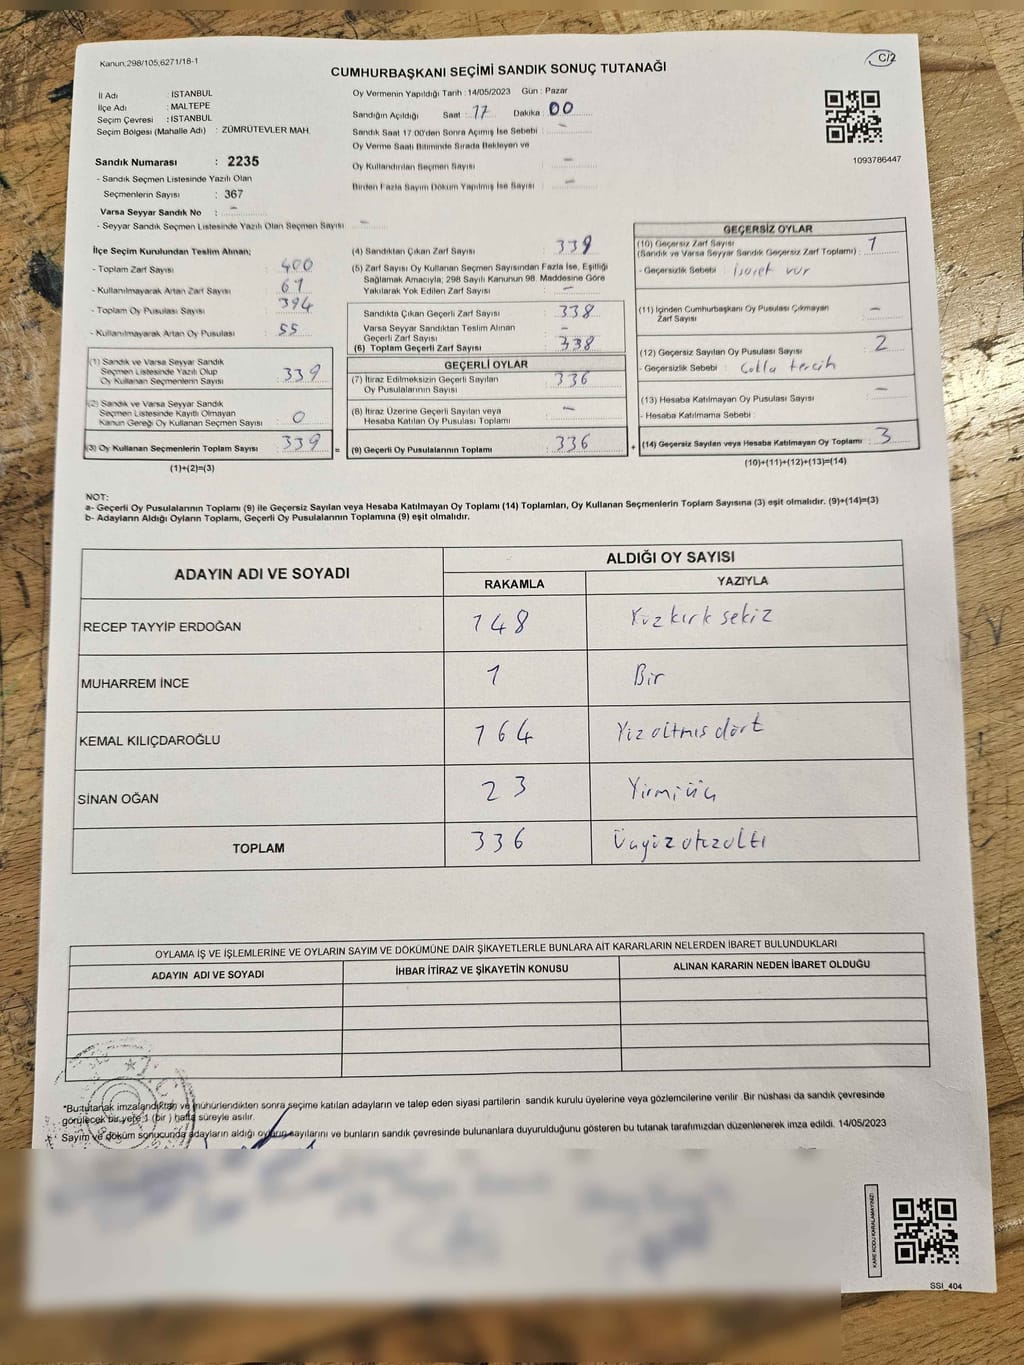 Kanun:298/105,6271/18-1
C/2
CUMHURBAŞKANI SEÇİMİ SANDIK SONUÇ TUTANAĞI
İl Adı : İSTANBUL
İlçe Adı : MALTEPE
Seçim Çevresi : İSTANBUL
Seçim Bölgesi (Mahalle Adı) : ZÜMRÜTEVLER MAH.
Sandık Numarası : 2235
- Sandık Seçmen Listesinde Yazılı Olan
Seçmenlerin Sayısı : 367
Varsa Seyyar Sandık No : -
- Seyyar Sandık Seçmen Listesinde Yazılı Olan Seçmen Sayısı -
Oy Vermenin Yapıldığı Tarih : 14/05/2023 Gün : Pazar
Sandığın Açıldığı Saat : 17 Dakika : 00
Sandık Saat 17:00'den Sonra Açımış İse Sebebi : -
Oy Verme Saati Bitiminde Sırada Bekleyen ve
Oy Kullandırılan Seçmen Sayısı : -
Birden Fazla Sayım Döküm Yapılmış İse Sayısı : -
1093786447
İlçe Seçim Kurulundan Teslim Alınan;
- Toplam Zarf Sayısı : 400
- Kullanılmayarak Artan Zarf Sayısı : 61
- Toplam Oy Pusulası Sayısı : 394
- Kullanılmayarak Artan Oy Pusulası : 55
(1) Sandık ve Varsa Seyyar Sandık
Seçmen Listesinde Yazılı Olup
Oy Kullanan Seçmenlerin Sayısı : 339
(2) Sandık ve Varsa Seyyar Sandık
Seçmen Listesinde Kayıtlı Olmayan
Kanun Gereği Oy Kullanan Seçmen Sayısı : 0
(3) Oy Kullanan Seçmenlerin Toplam Sayısı : 339
(1)+(2)=(3)
(4) Sandıktan Çıkan Zarf Sayısı : 339
(5) Zarf Sayısı Oy Kullanan Seçmen Sayısından Fazla İse, Eşitliği
Sağlamak Amacıyla; 298 Sayılı Kanunun 98. Maddesine Göre
Yakılarak Yok Edilen Zarf Sayısı : -
Sandıkta Çıkan Geçerli Zarf Sayısı : 338
Varsa Seyyar Sandıktan Teslim Alınan
Geçerli Zarf Sayısı : -
(6) Toplam Geçerli Zarf Sayısı : 338
GEÇERLİ OYLAR
(7) İtiraz Edilmeksizin Geçerli Sayılan
Oy Pusulalarının Sayısı : 336
(8) İtiraz Üzerine Geçerli Sayılan veya
Hesaba Katılan Oy Pusulaları Toplamı : -
= (9) Geçerli Oy Pusulalarının Toplamı : 336
GEÇERSİZ OYLAR
(10) Geçersiz Zarf Sayısı
(Sandık ve Varsa Seyyar Sandık Geçersiz Zarf Toplamı) : 1
- Geçersizlik Sebebi : İşaret var
(11) İçinden Cumhurbaşkanı Oy Pusulası Çıkmayan
Zarf Sayısı : -
(12) Geçersiz Sayılan Oy Pusulası Sayısı : 2
- Geçersizlik Sebebi : Çoklu tercih
(13) Hesaba Katılmayan Oy Pusulası Sayısı : -
- Hesaba Katılmama Sebebi :
+ (14) Geçersiz Sayılan veya Hesaba Katılmayan Oy Toplamı : 3
(10)+(11)+(12)+(13)=(14)
NOT:
a- Geçerli Oy Pusulalarının Toplamı (9) ile Geçersiz Sayılan veya Hesaba Katılmayan Oy Toplamı (14) Toplamları, Oy Kullanan Seçmenlerin Toplam Sayısına (3) eşit olmalıdır. (9)+(14)=(3)
b- Adayların Aldığı Oyların Toplamı, Geçerli Oy Pusulalarının Toplamına (9) eşit olmalıdır.
ADAYIN ADI VE SOYADI
ALDIĞI OY SAYISI
RAKAMLA YAZIYLA
RECEP TAYYİP ERDOĞAN 148 Yüzkırk sekiz
MUHARREM İNCE 1 Bir
KEMAL KILIÇDAROĞLU 164 Yüz altmış dört
SİNAN OĞAN 23 Yirmi üç
TOPLAM 336 Üçyüz otuzaltı
OYLAMA İŞ VE İŞLEMLERİNE VE OYLARIN SAYIM VE DÖKÜMÜNE DAİR ŞİKAYETLERLE BUNLARA AİT KARARLARIN NELERDEN İBARET BULUNDUKLARI
ADAYIN ADI VE SOYADI İHBAR İTİRAZ VE ŞİKAYETİN KONUSU ALINAN KARARIN NEDEN İBARET OLDUĞU
*Bu tutanak imzalandıktan ve mühürlendikten sonra seçime katılan adayların ve talep eden siyasi partilerin sandık kurulu üyelerine veya gözlemcilerine verilir. Bir nüshası da sandık çevresinde
görülecek bir yere 1 (bir) hafta süreyle asılır.
Sayım ve döküm sonucunda adayların aldığı oyların sayılarını ve bunların sandık çevresinde bulunanlara duyurulduğunu gösteren bu tutanak tarafımızdan düzenlenerek imza edildi. 14/05/2023
KARE KODU KARALAMAYINIZ!
SSI_404